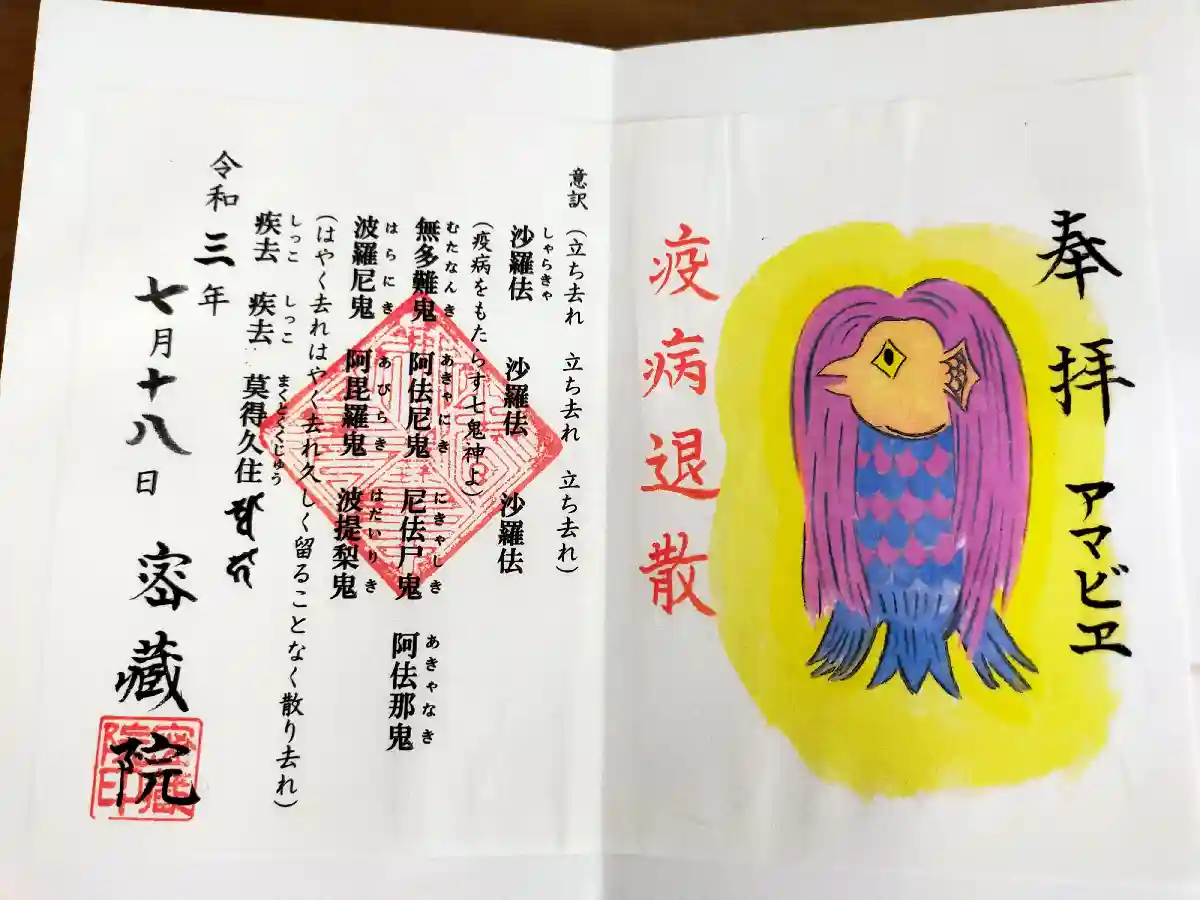 奉拝
アマビヱ
疫病退散
意訳（立ち去れ 立ち去れ 立ち去れ）
しゃらきゃ
沙羅佉 沙羅佉 沙羅佉
（疫病をもたらす七鬼神よ）
むたなんき あきゃにき にきゃしき あきゃなき
無多難鬼 阿佉尼鬼 尼佉尸鬼 阿佉那鬼
はらにき あびらき はだいりき
波羅尼鬼 阿毘羅鬼 波提梨鬼
（はやく去れはやく去れ久しく留ることなく散り去れ）
しっこ しっこ まくとくくじゅう
疾去 疾去 莫得久住
令和三年
七月十八日
密蔵院
密蔵院印